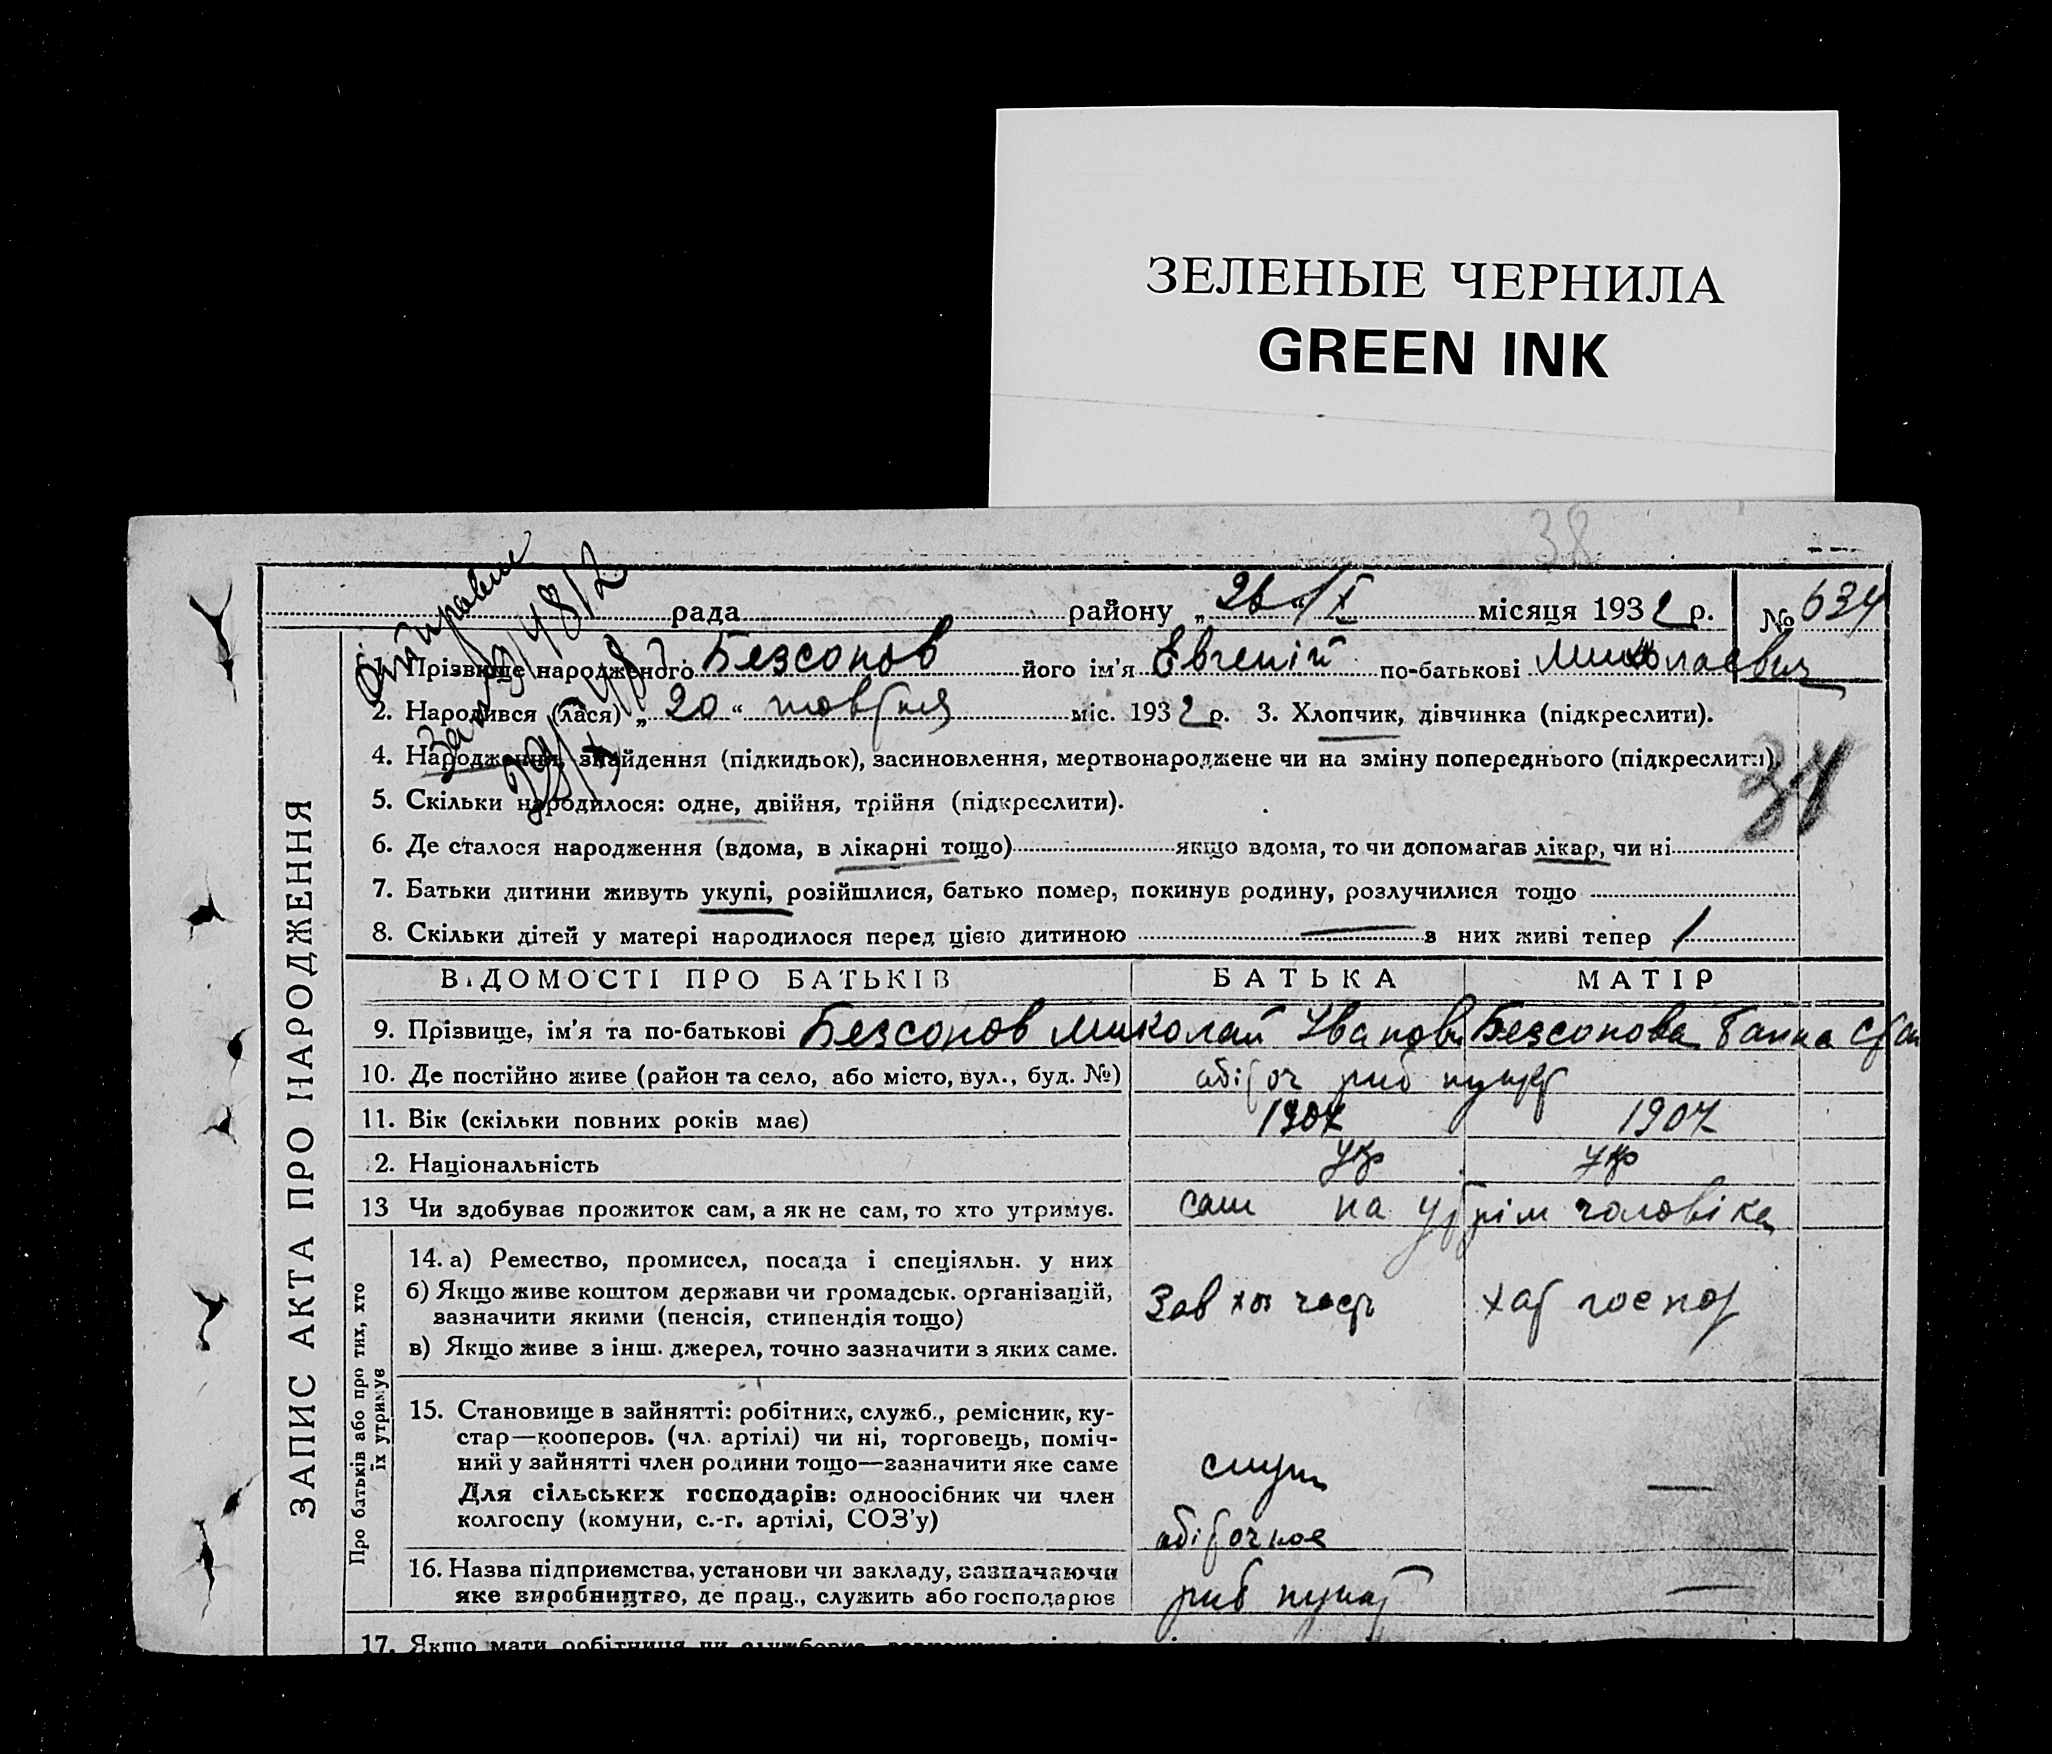 ЗЕЛЕНЫЕ ЧЕРНИЛА
GREEN INK
38
рада району „26“ X місяця 1932 р. № 634
1. Прізвище народженого Безсонов його ім'я Евгеній по-батькові Миколаевич
2. Народився (лася) „20“ жовтня міс. 1932 р. 3. Хлопчик, дівчинка (підкреслити).
4. Народження, знайдення (підкидьок), засиновлення, мертвонароджене чи на зміну попереднього (підкреслити)
5. Скільки народилося: одне, двійня, трійня (підкреслити).
6. Де сталося народження (вдома, в лікарні тощо) якщо вдома, то чи допомагав лікар, чи ні
7. Батьки дитини живуть укупі, розійшлися, батько помер, покинув родину, розлучилися тощо
8. Скільки дітей у матері народилося перед цією дитиною — з них живі тепер 1
ЗАПИС АКТА ПРО НАРОДЖЕННЯ
ВІДОМОСТІ ПРО БАТЬКІВ БАТЬКА МАТІР
9. Прізвище, ім'я та по-батькові Безсонов Миколай Иванов Безсонова Ганна
10. Де постійно живе (район та село, або місто, вул., буд. №) риб пункт
11. Вік (скільки повних років має) 1907 1907
2. Національність Укр Укр
13 Чи здобуває прожиток сам, а як не сам, то хто утримує. сам на утрім чоловіка
Про батьків або про тих, хто їх утримує
14. а) Ремество, промисел, посада і спеціяльн. у них
б) Якщо живе коштом держави чи громадськ. організацій,
зазначити якими (пенсія, стипендія тощо) Зав хоз част хат господ
в) Якщо живе з інш. джерел, точно зазначити з яких саме.
15. Становище в зайнятті: робітник, служб., ремісник, ку-
стар—кооперов. (чл. артілі) чи ні, торговець, поміч-
ний у зайнятті член родини тощо—зазначити яке саме служ —
Для сільських господарів: одноосібник чи член
колгоспу (комуни, с.-г. артілі, СОЗ'у)
16. Назва підприємства, установи чи закладу, зазначаючи
яке виробництво, де прац., служить або господарює риб пункт —
17. Якщо мати робітниця чи службовка,